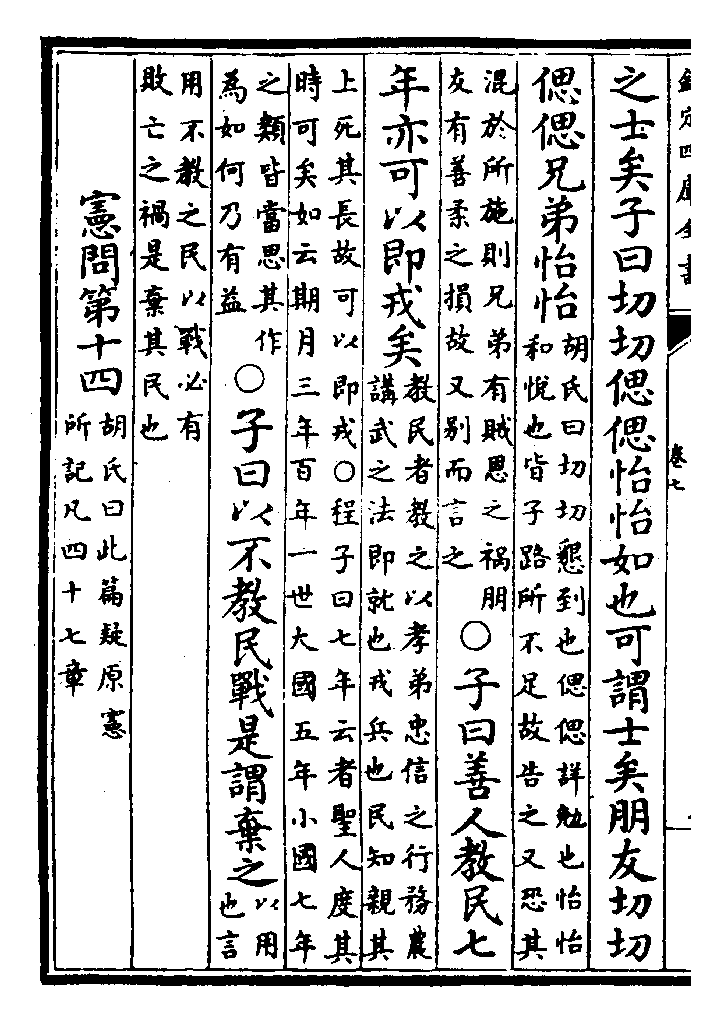 欽定四庫全書
卷七
之士矣子曰切切偲偲怡怡如也可謂士矣朋友切切
偲偲兄弟怡怡
胡氏曰切切懇到也偲偲詳勉也怡怡
和悅也皆子路所不足故告之又恐其
混於所施則兄弟有賊恩之禍朋
友有善柔之損故又别而言之
○子曰善人教民七
年亦可以即戎矣
教民者教之以孝弟忠信之行務農
講武之法即就也戎兵也民知親其
上死其長故可以即戎○程子曰七年云者聖人度其
時可矣如云期月三年百年一世大國五年小國七年
之類皆當思其作
為如何乃有益
○子曰以不教民戰是謂棄之
以用
也言
用不教之民以戰必有
敗亡之禍是棄其民也
憲問第十四
胡氏曰此篇疑原憲
所記凡四十七章